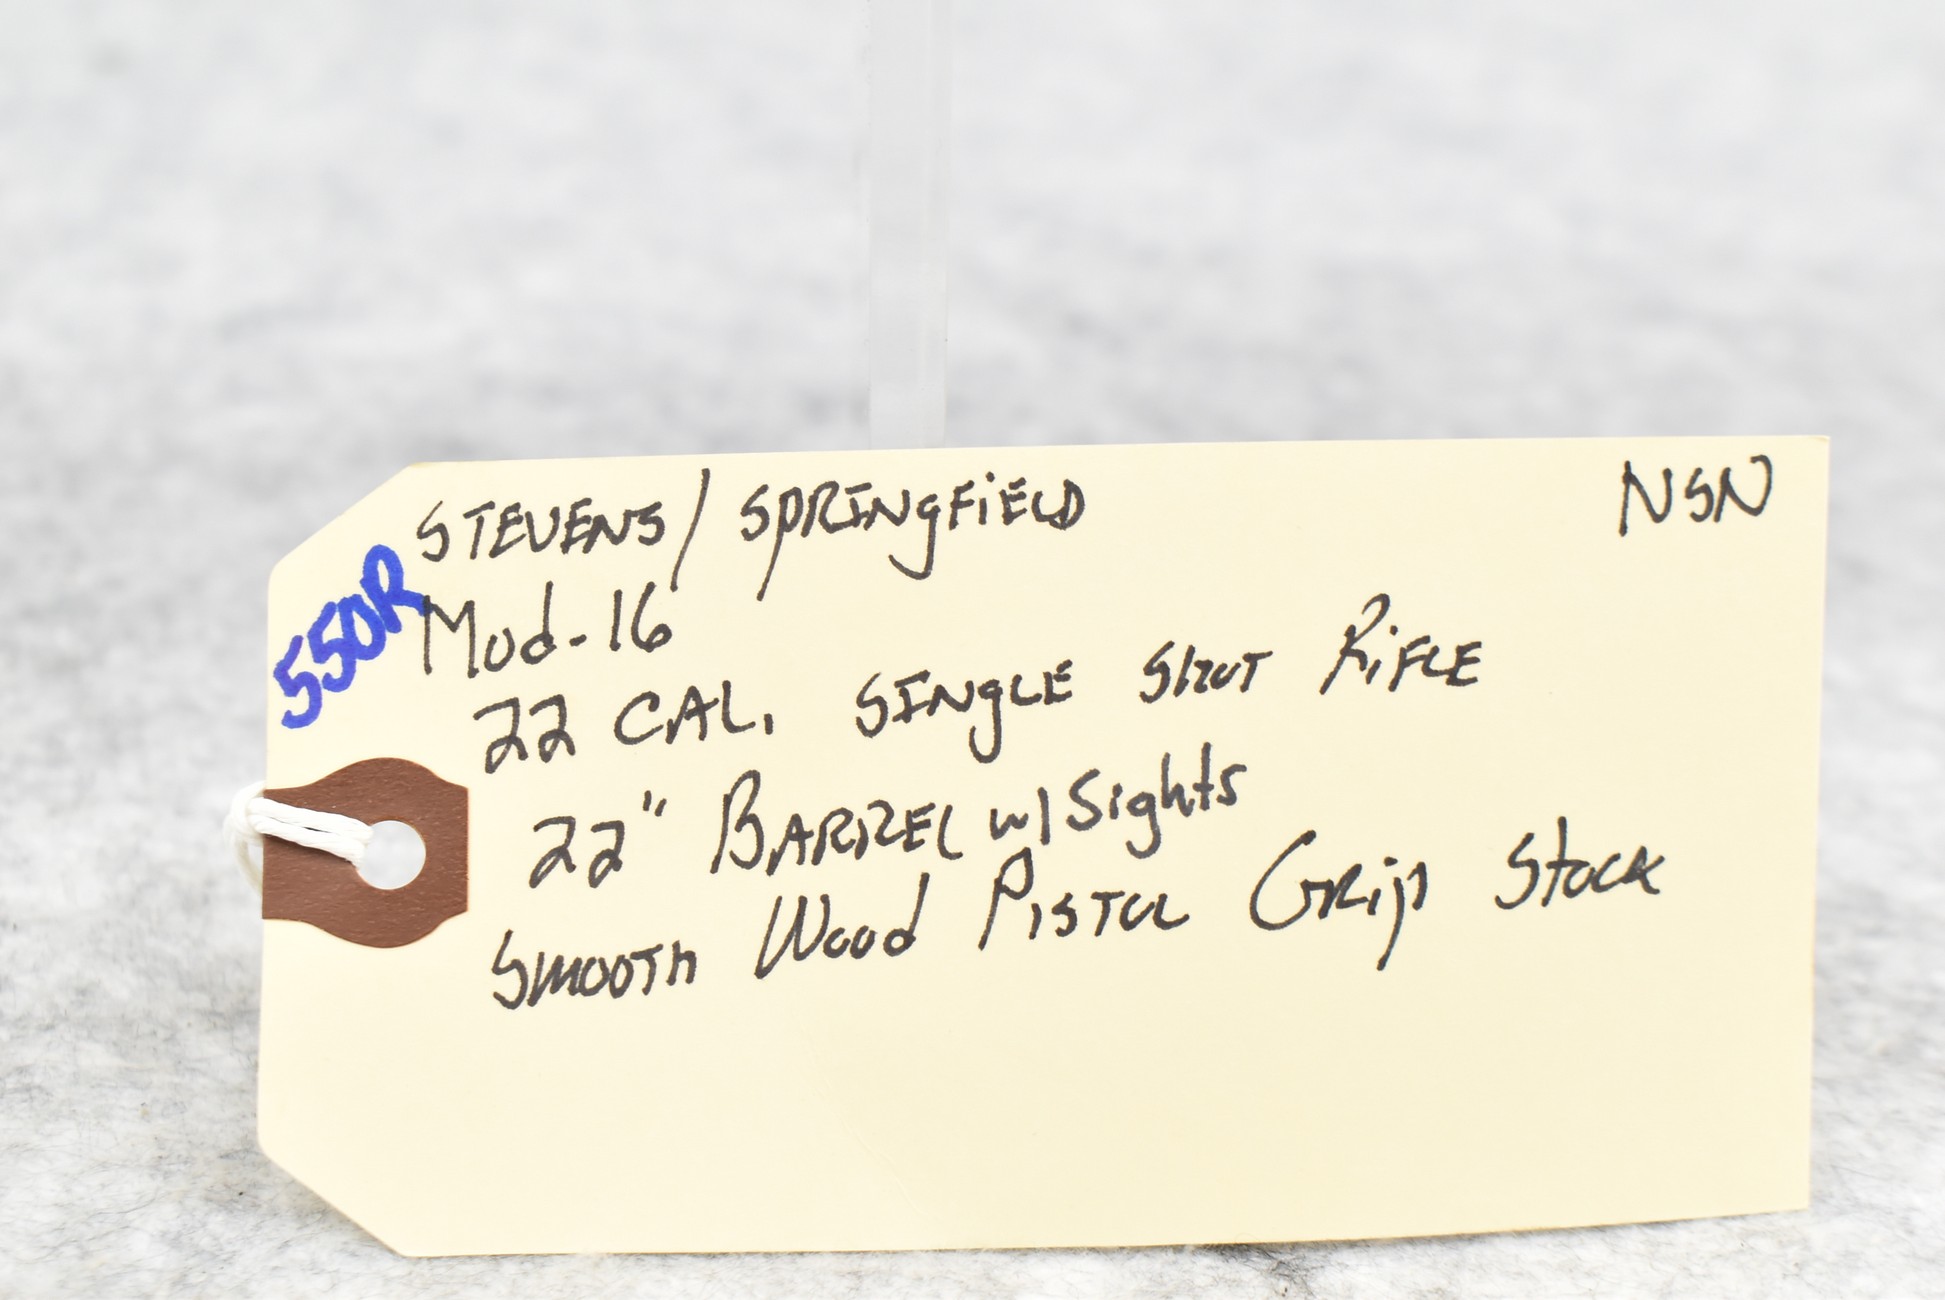 STEVENS/SPRINGFIELD NSN
550R
Mod-16
22 CAL. SINGLE SHOT RIFLE
22" BARREL w/Sights
SMOOTH Wood PISTOL GRIP Stock